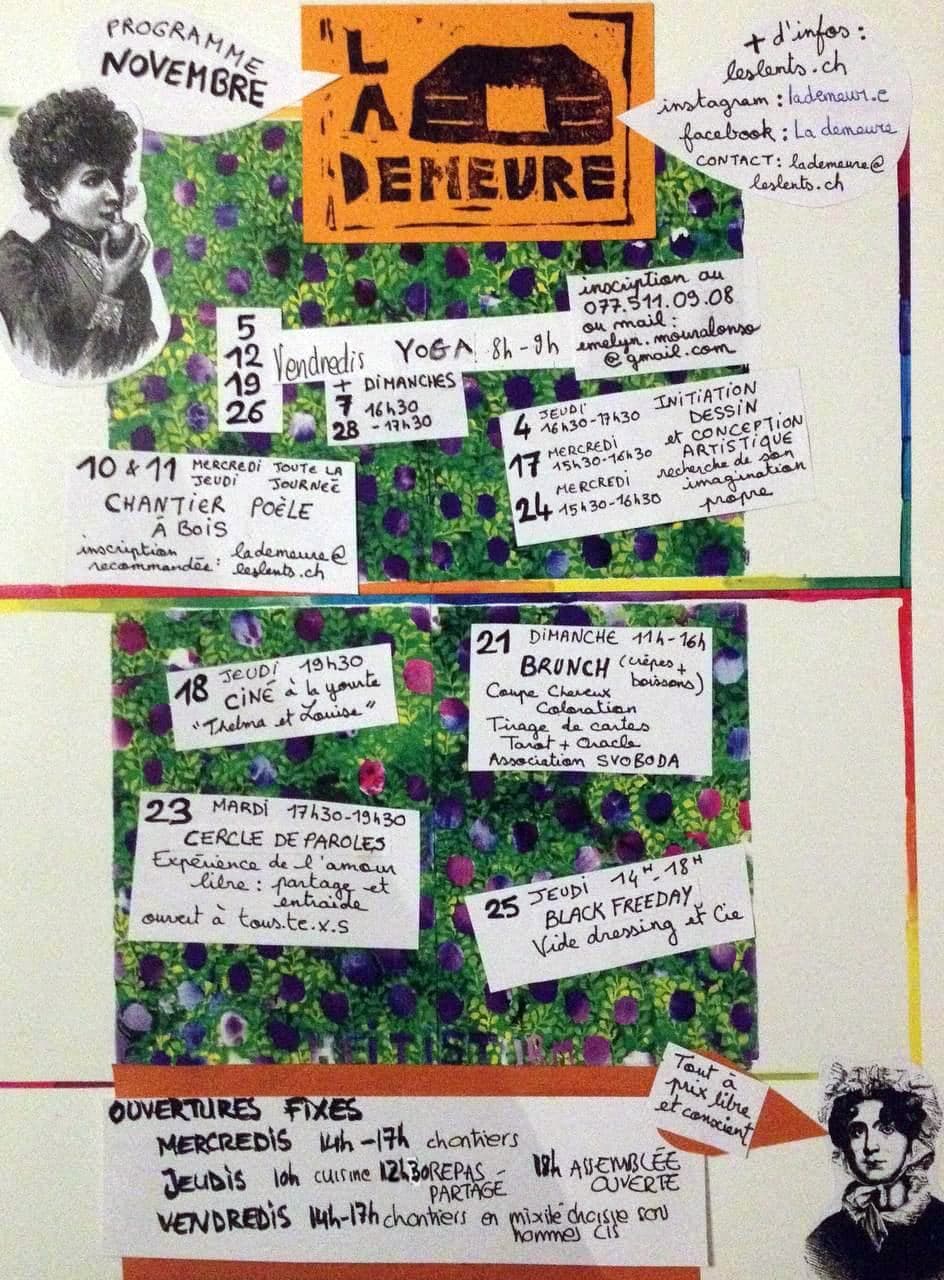 PROGRAMME
NOVEMBRE
LA
DEMEURE
+ d'infos :
leslents.ch
instagram : lademeur.e
facebook : La demeure
CONTACT : lademeure@
leslents.ch
inscription au
077.511.09.08
ou mail :
emelyn.mouralonso
@gmail.com
5
12
19
26
Vendredis YOGA 8h-9h
+ DIMANCHES
7 16h30
28 - 17h30
4 JEUDI
16h30-17h30
17 MERCREDI
15h30-16h30
24 MERCREDI
15h30-16h30
INITIATION
DESSIN
et CONCEPTION
ARTISTIQUE
recherche de son
imagination
propre
10 & 11 MERCREDI TOUTE LA
JEUDI JOURNÉE
CHANTIER POÊLE
À BOIS
inscription lademeure@
recommandée : leslents.ch
18 JEUDI 19h30
CINÉ à la yourte
"Thelma et Louise"
21 DIMANCHE 11h-16h
BRUNCH (crêpes +
boissons)
Coupe Cheveux
Coloration
Tirage de cartes
Tarot + Oracle
Association SVOBODA
23 MARDI 17h30-19h30
CERCLE DE PAROLES
Expérience de l'amour
libre : partage et
entraide
ouvert à tous.te.x.s
25 JEUDI 14H-18H
BLACK FREEDAY
Vide dressing et Cie
Tout à
prix libre
et conscient
OUVERTURES FIXES
MERCREDIS 14h-17h chantiers
JEUDIS 10h cuisine 12h30 REPAS
PARTAGÉ
18h ASSEMBLÉE
OUVERTE
VENDREDIS 14h-17h chantiers en mixité choisie sans
hommes cis